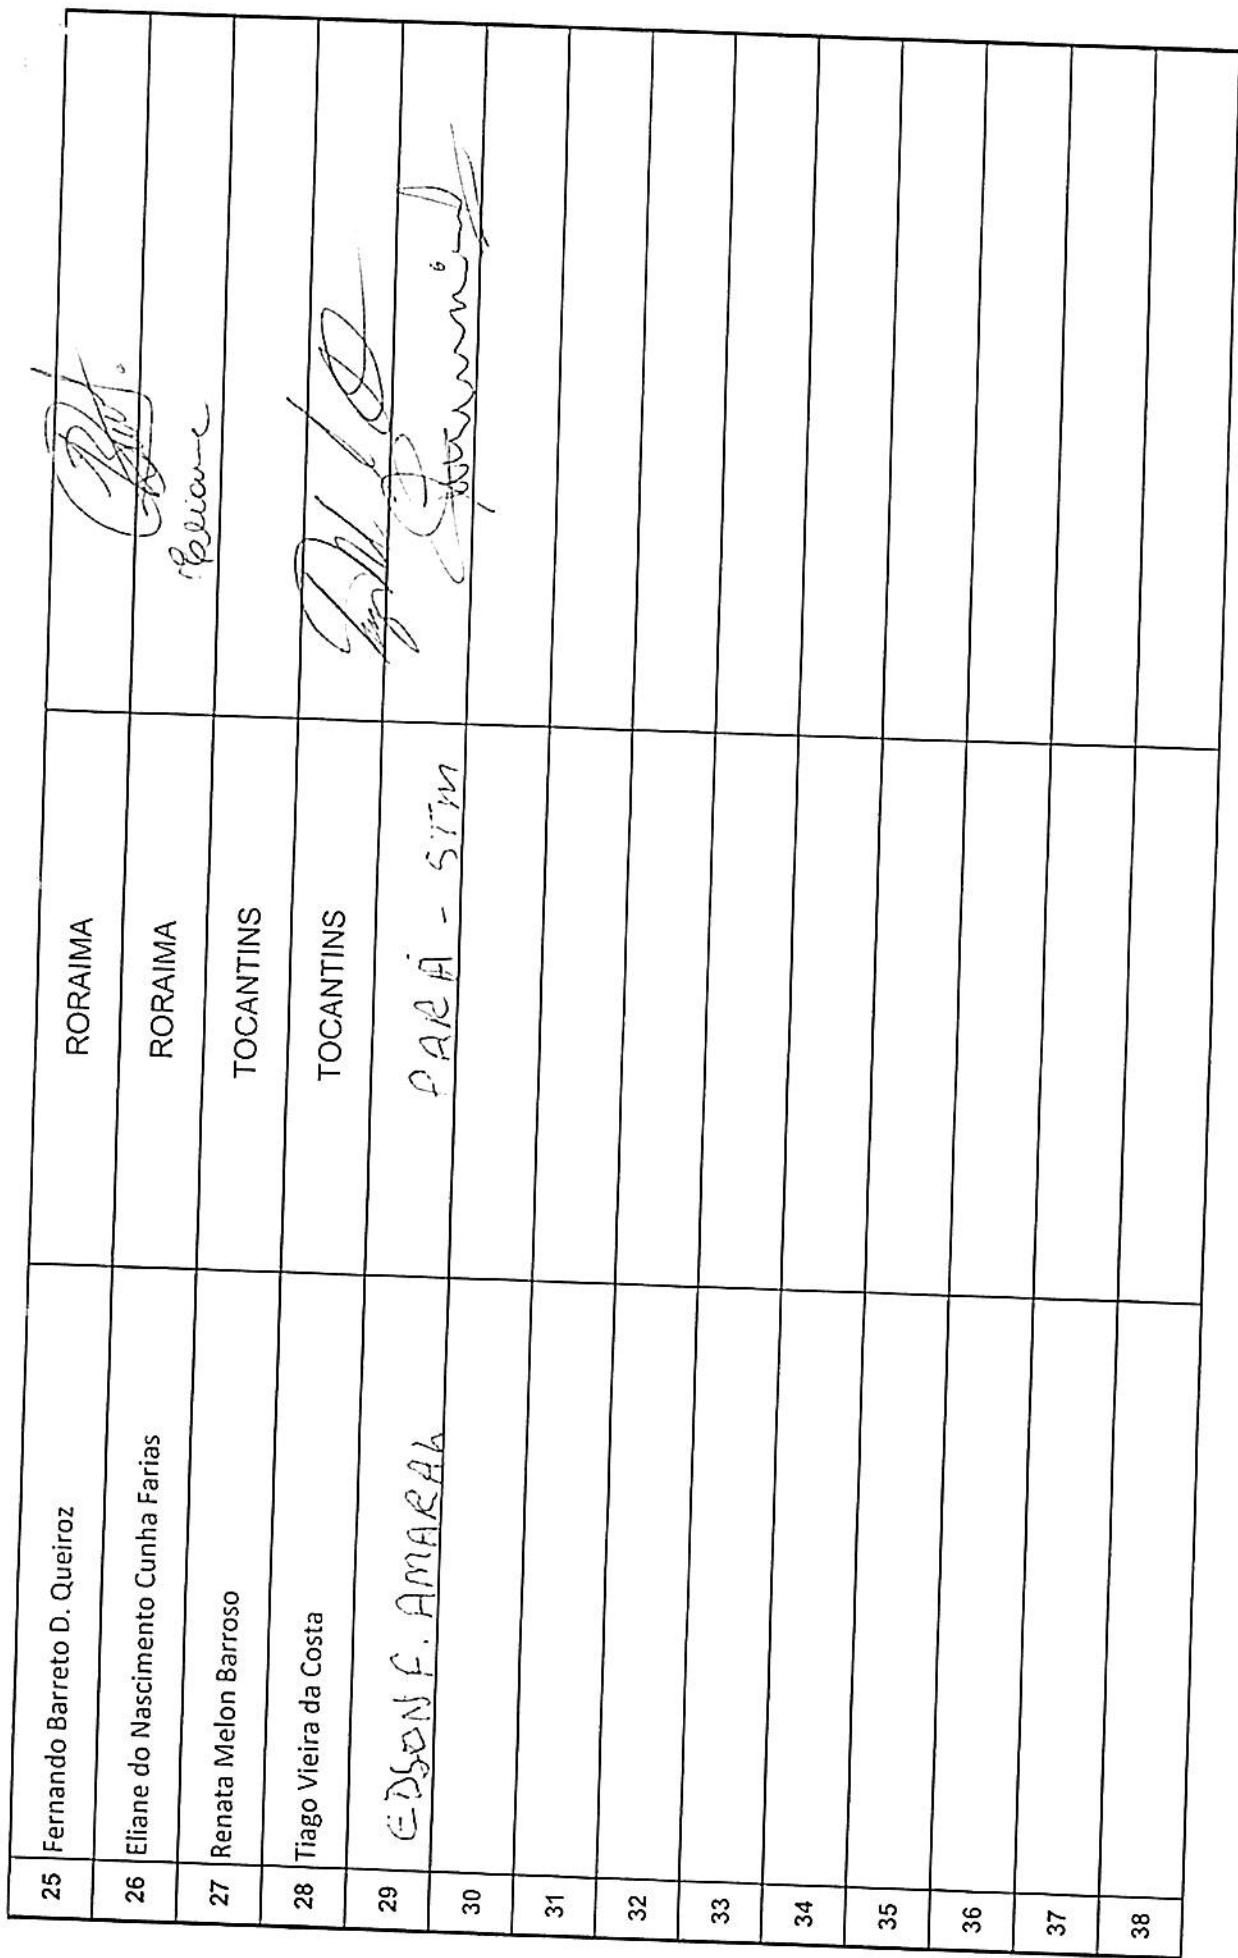 25 Fernando Barreto D. Queiroz RORAIMA
26 Eliane do Nascimento Cunha Farias RORAIMA Eliane
27 Renata Melon Barroso TOCANTINS
28 Tiago Vieira da Costa TOCANTINS
29 EDSON F. AMARAL PARÁ - STM
30
31
32
33
34
35
36
37
38